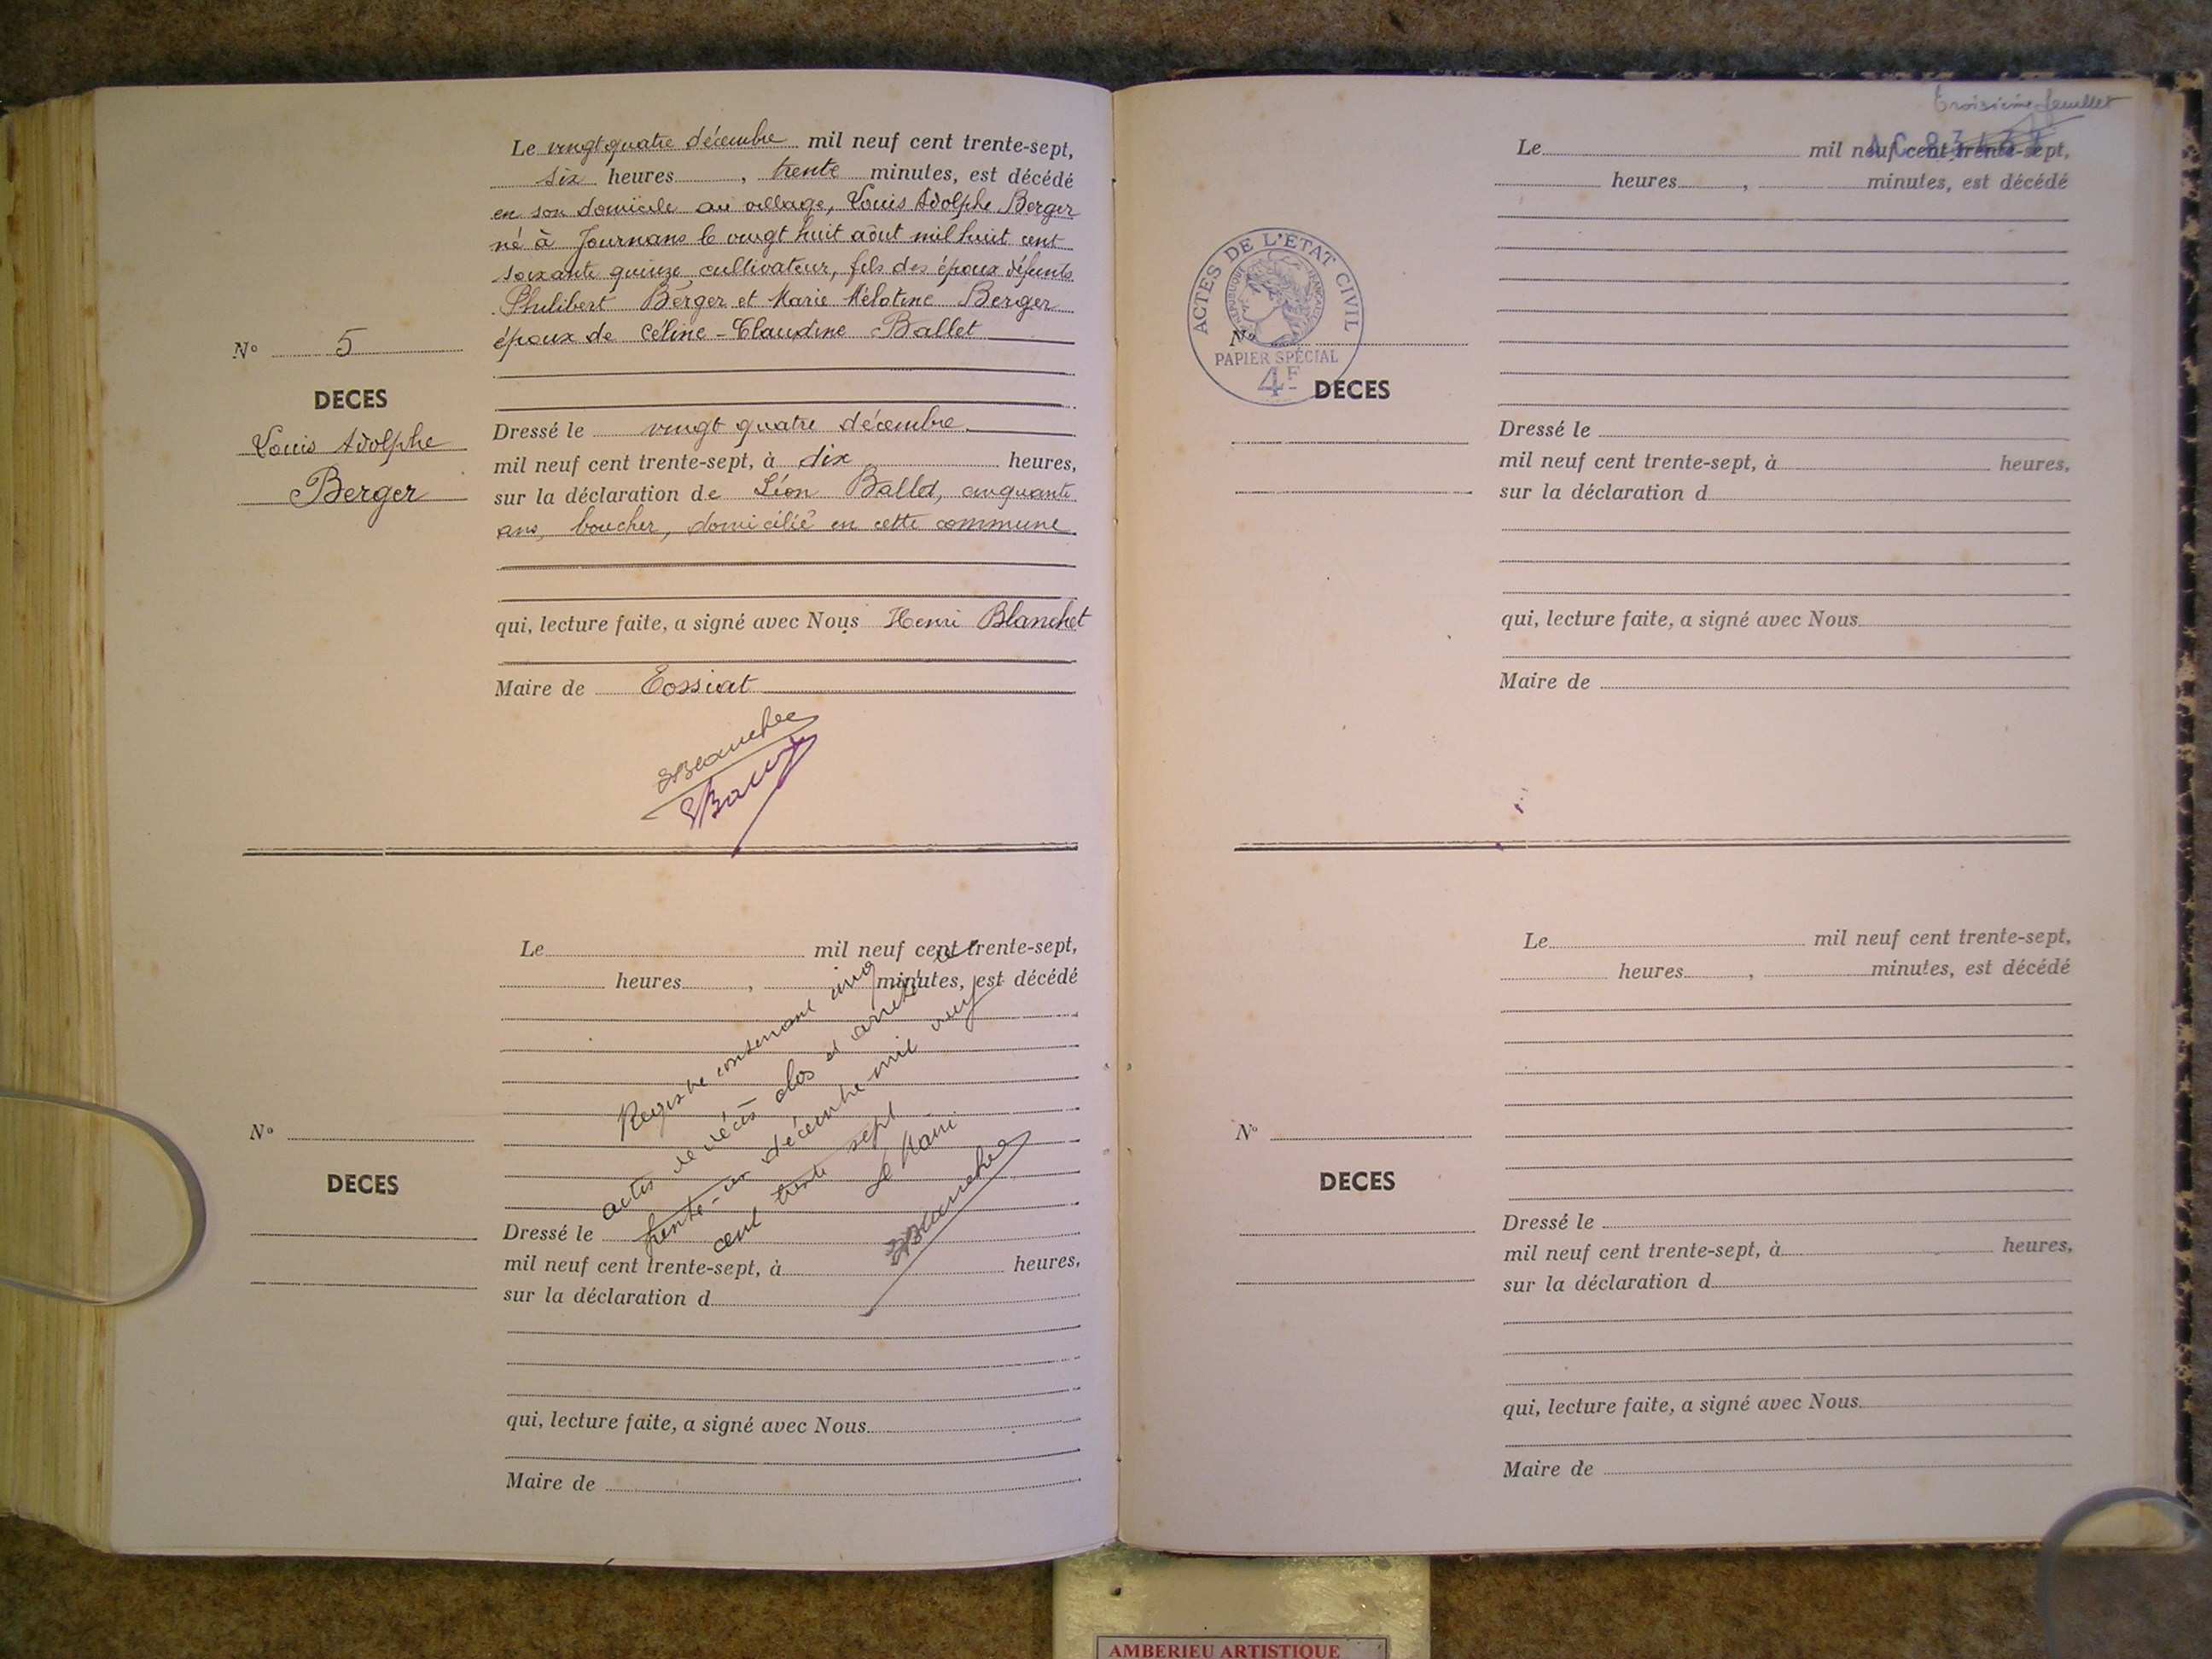 Le vingt quatre décembre mil neuf cent trente-sept,
six heures, trente minutes, est décédé
en son domicile au village, Louis Adolphe Berger
né à Journans le vingt huit août mil huit cent
soixante quinze cultivateur, fils des époux défunts
Philibert Berger et Marie Mélatine Berger
époux de Céline-Claudine Ballet
N° 5
DECES
Louis Adolphe
Berger
Dressé le vingt quatre décembre
mil neuf cent trente-sept, à dix heures,
sur la déclaration de Léon Ballet, cinquante
ans, boucher, domicilié en cette commune
qui, lecture faite, a signé avec Nous Henri Blanchet
Maire de Tossiat
HBlanchet
Le mil neuf cent trente-sept,
heures, minutes, est décédé
Registre contenant cinq
actes de décès clos et arrêté le
trente-un décembre mil neuf
cent trente sept
Le Maire
HBlanchet
N°
DECES
Dressé le
mil neuf cent trente-sept, à heures,
sur la déclaration d
qui, lecture faite, a signé avec Nous
Maire de
troisième feuillet
Le mil neuf cent trente-sept,
heures, minutes, est décédé
ACTES DE L'ETAT CIVIL
REPUBLIQUE FRANCAISE
N°
PAPIER SPÉCIAL
4F
DECES
Dressé le
mil neuf cent trente-sept, à heures,
sur la déclaration d
qui, lecture faite, a signé avec Nous
Maire de
Le mil neuf cent trente-sept,
heures, minutes, est décédé
N°
DECES
Dressé le
mil neuf cent trente-sept, à heures,
sur la déclaration d
qui, lecture faite, a signé avec Nous
Maire de
AMBERIEU ARTISTIQUE